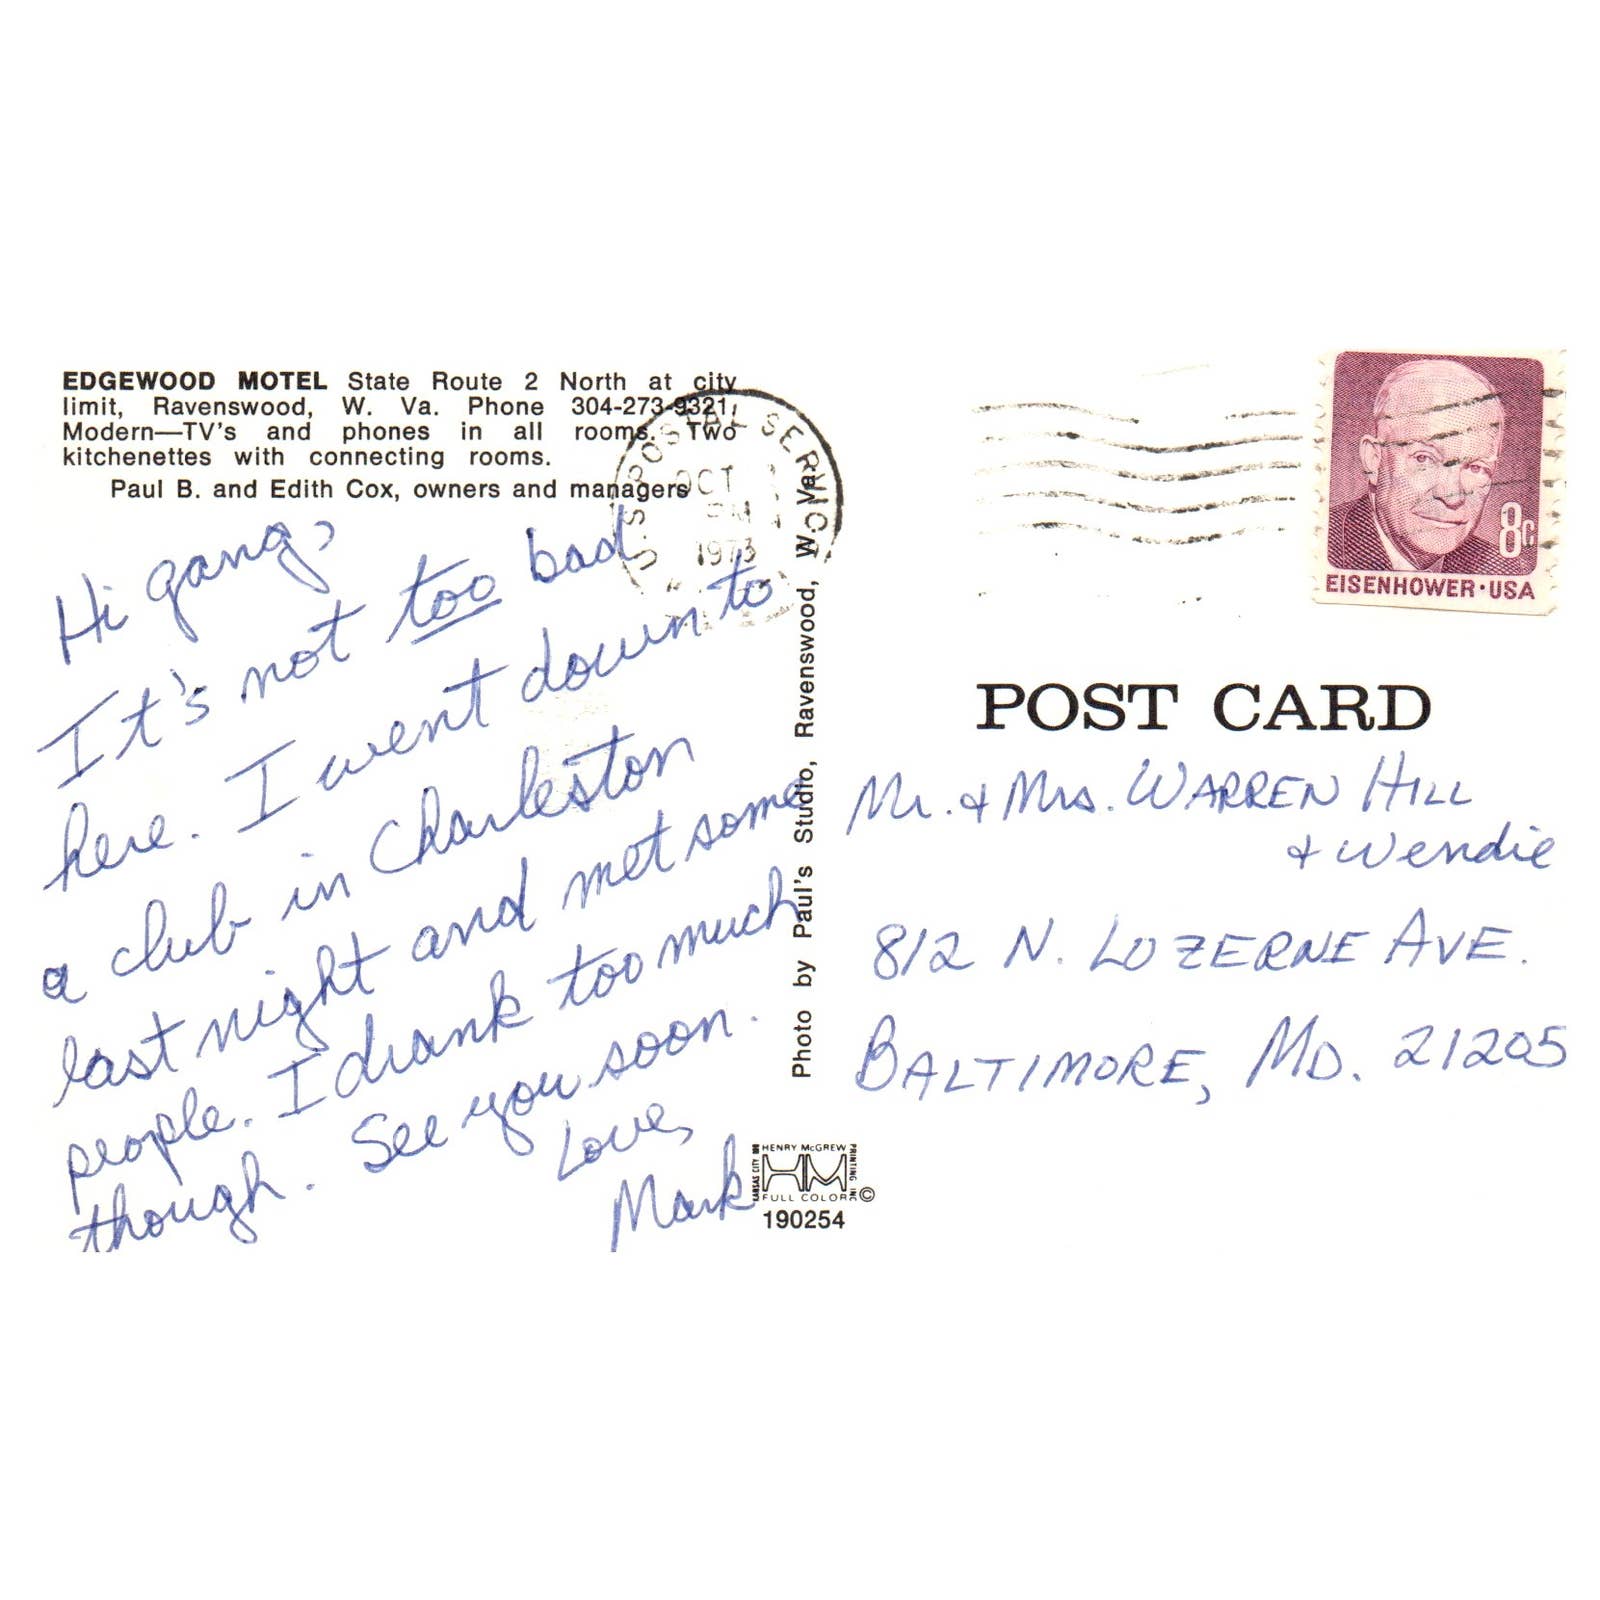 EDGEWOOD MOTEL State Route 2 North at city
limit, Ravenswood, W. Va. Phone 304-273-9321.
Modern—TV's and phones in all rooms. Two
kitchenettes with connecting rooms.
Paul B. and Edith Cox, owners and managers
Hi gang,
It's not too bad
here. I went down to
a club in Charleston
last night and met some
people. I drank too much
though. See you soon.
Love,
Mark
U.S. POSTAL SERVICE
OCT
PM
1973
Photo by Paul's Studio, Ravenswood, W. Va.
HENRY McGREW
PRINTING INC
KANSAS CITY
HM
FULL COLOR
©
190254
8c
EISENHOWER·USA
POST CARD
Mr. & Mrs. WARREN HILL
& Wendie
812 N. LOZERNE AVE.
BALTIMORE, MD. 21205